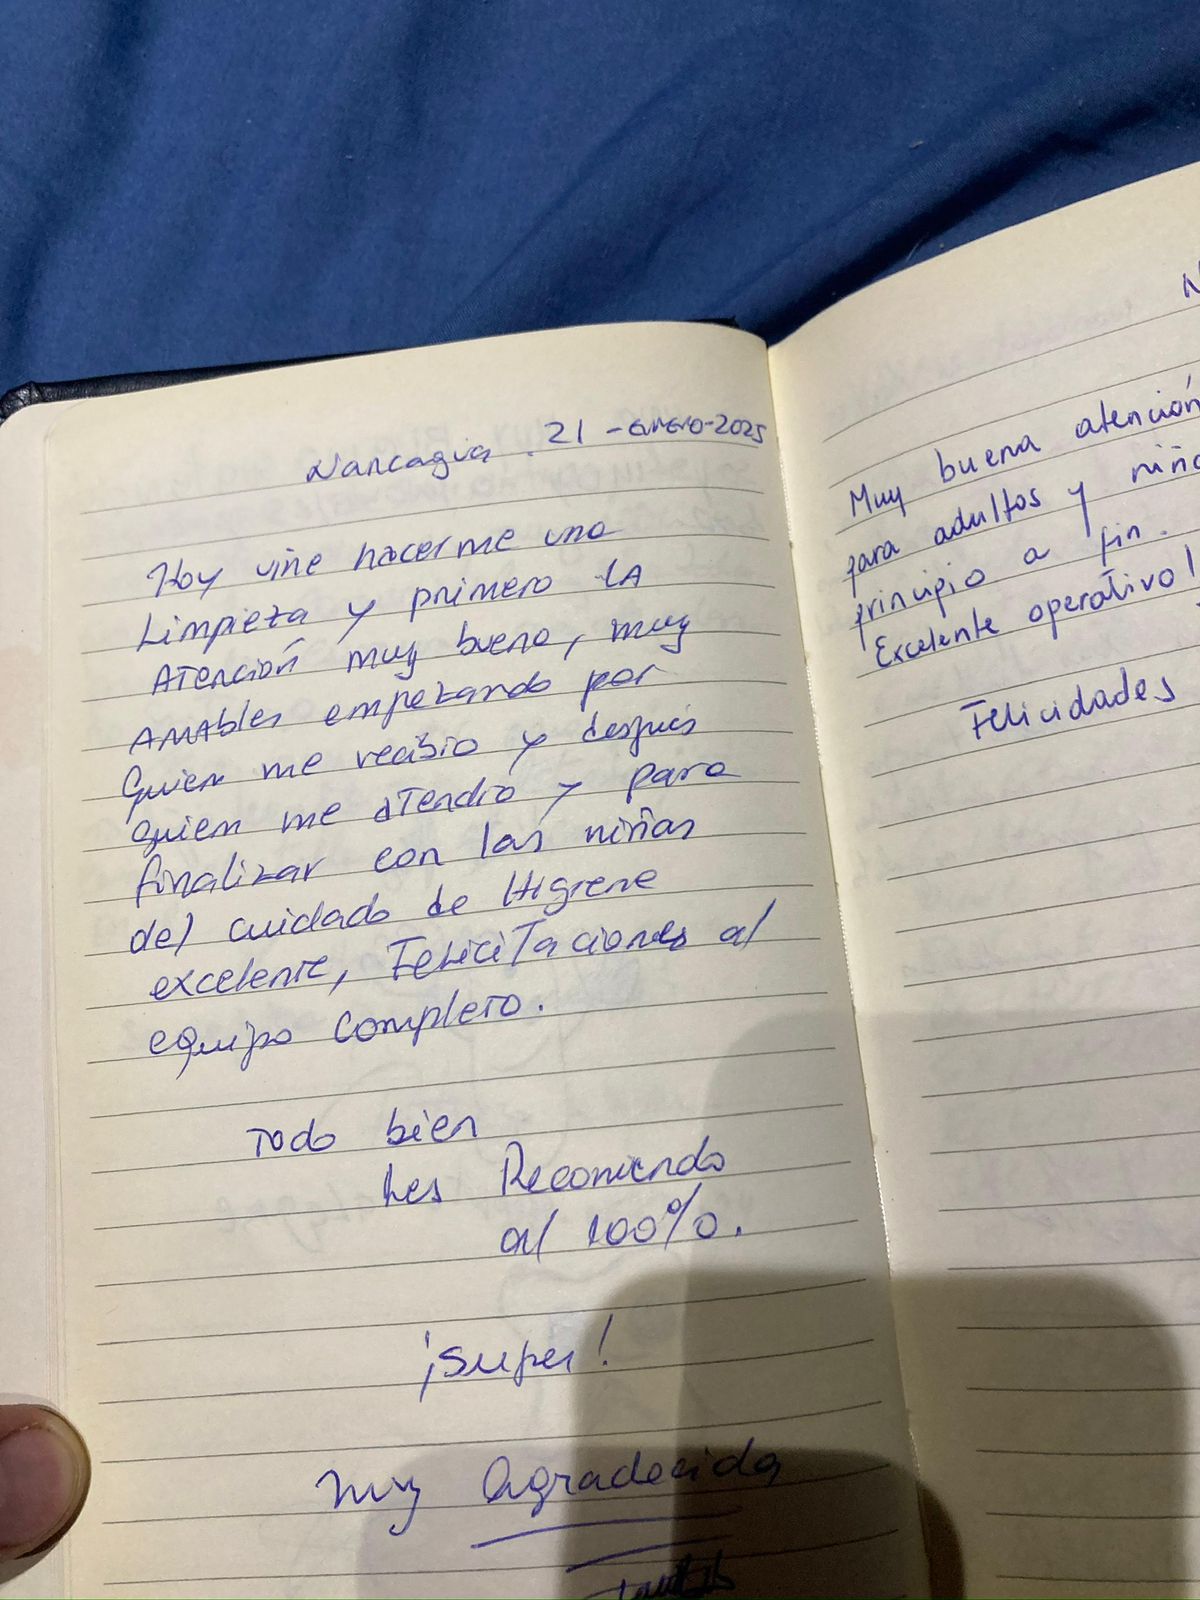 Nancagua. 21-ENERO-2025
Hoy viñe hacerme una
Limpieza y primero LA
Atención muy buena, muy
AMAbles empezando por
Quien me recibio y después
quien me atendio y para
finalizar con las niñas
del cuidado de Higiene
excelente, Felicitaciones al
equipo completo.
Todo bien
Les Recomiendo
al 100%.
¡Super!
Muy Agradecida
Muy buena atención
para adultos y
principio a fin.
Excelente operativo!
Felicidades